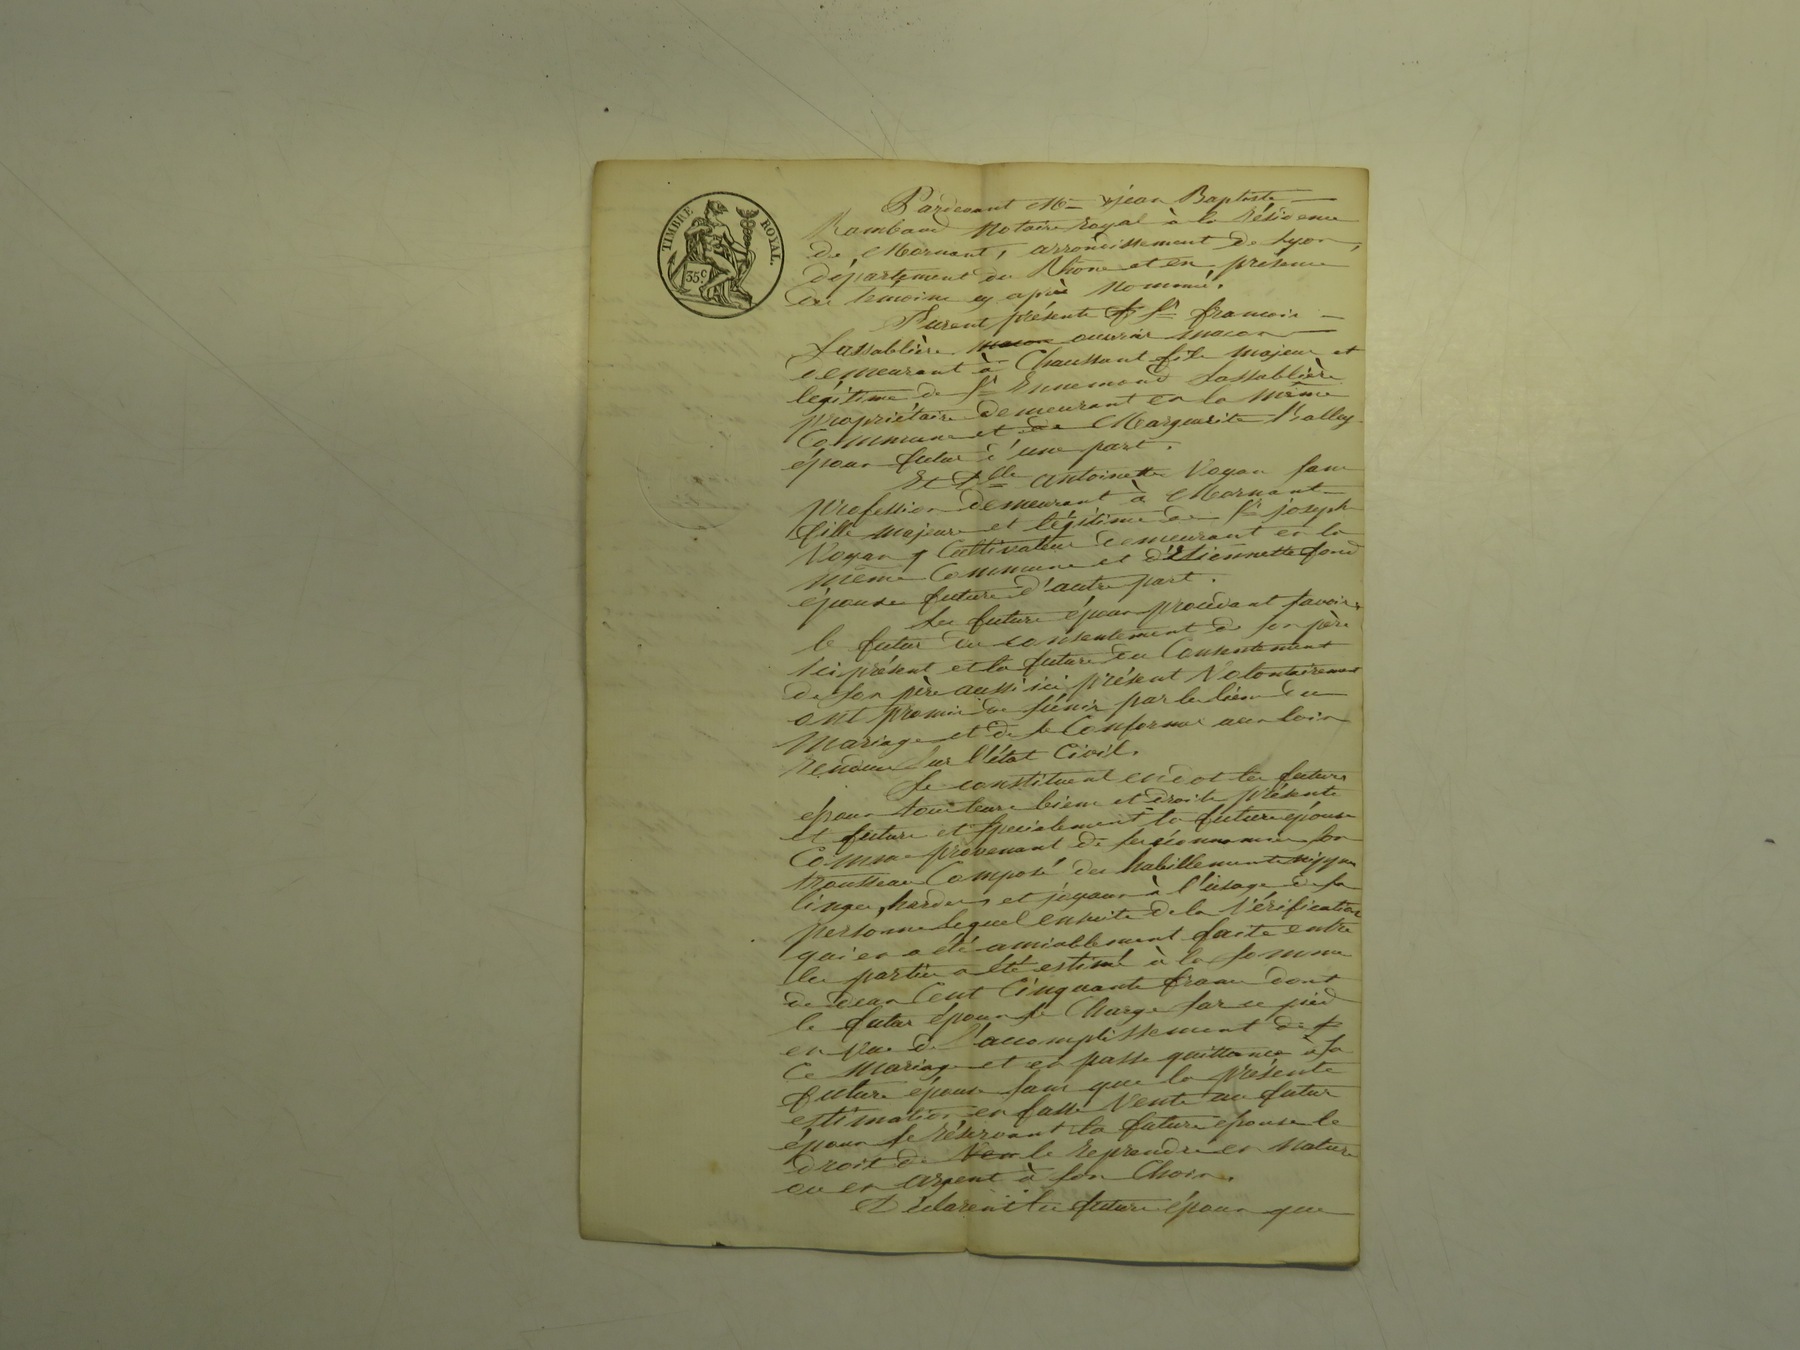 TIMBRE ROYAL.
35.c
Pardevant Me Jean Baptiste
Rambaud Notaire royal à la résidence
de Mornant, arrondissement de Lyon,
département du Rhône et en présence
des temoins cy après nommés.
Furent présents sr françois
Lassablière macon ouvrier macon
demeurant à Chaussant fils majeur et
légitime de sr Ennemond Lassablière
propriétaire demeurant en la même
Commune et de Marguerite
époux futur d'une part.
Et Dlle Antoinette Voyan sans
profession demeurant à Mornant
fille majeure et légitime de sr joseph
Voyan Cultivateur demeurant en la
même Commune et d'Etiennette fond
épouse future d'autre part.
Les futurs époux procédant savoir
le futur du consentement de son père
ici présent et la future du Consentement
de son père aussi ici présent Volontairement
ont promis de s'unir par les liens du
Mariage et de se Conformer aux loix
rendues sur l'état Civil.
Se constituent en dot les futurs
époux tous leurs biens et droits présents
et futurs et specialement la future épouse
Comme provenant de ses économies son
trousseau Composé des habillements
linges, hardes et joyaux à l'usage de sa
personne lequel ensuite de la vérification
qui en a été amiablement faite entre
les parties a été estimé à la somme
de deux Cent Cinquante francs dont
le futur époux se Charge sur ce pied
en vue de l'accomplissement de
Ce Mariage et en passe quittance à sa
future épouse sans que la présente
estimation en fasse Vente au futur
époux se réservant la future épouse le
droit de Ven le reprendre en nature
ou en argent à son Choix.
Déclarent les futurs époux que